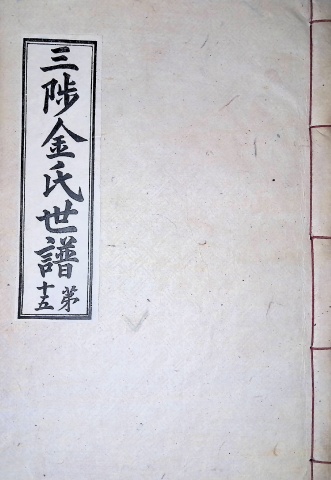 三陟金氏世譜 第十五